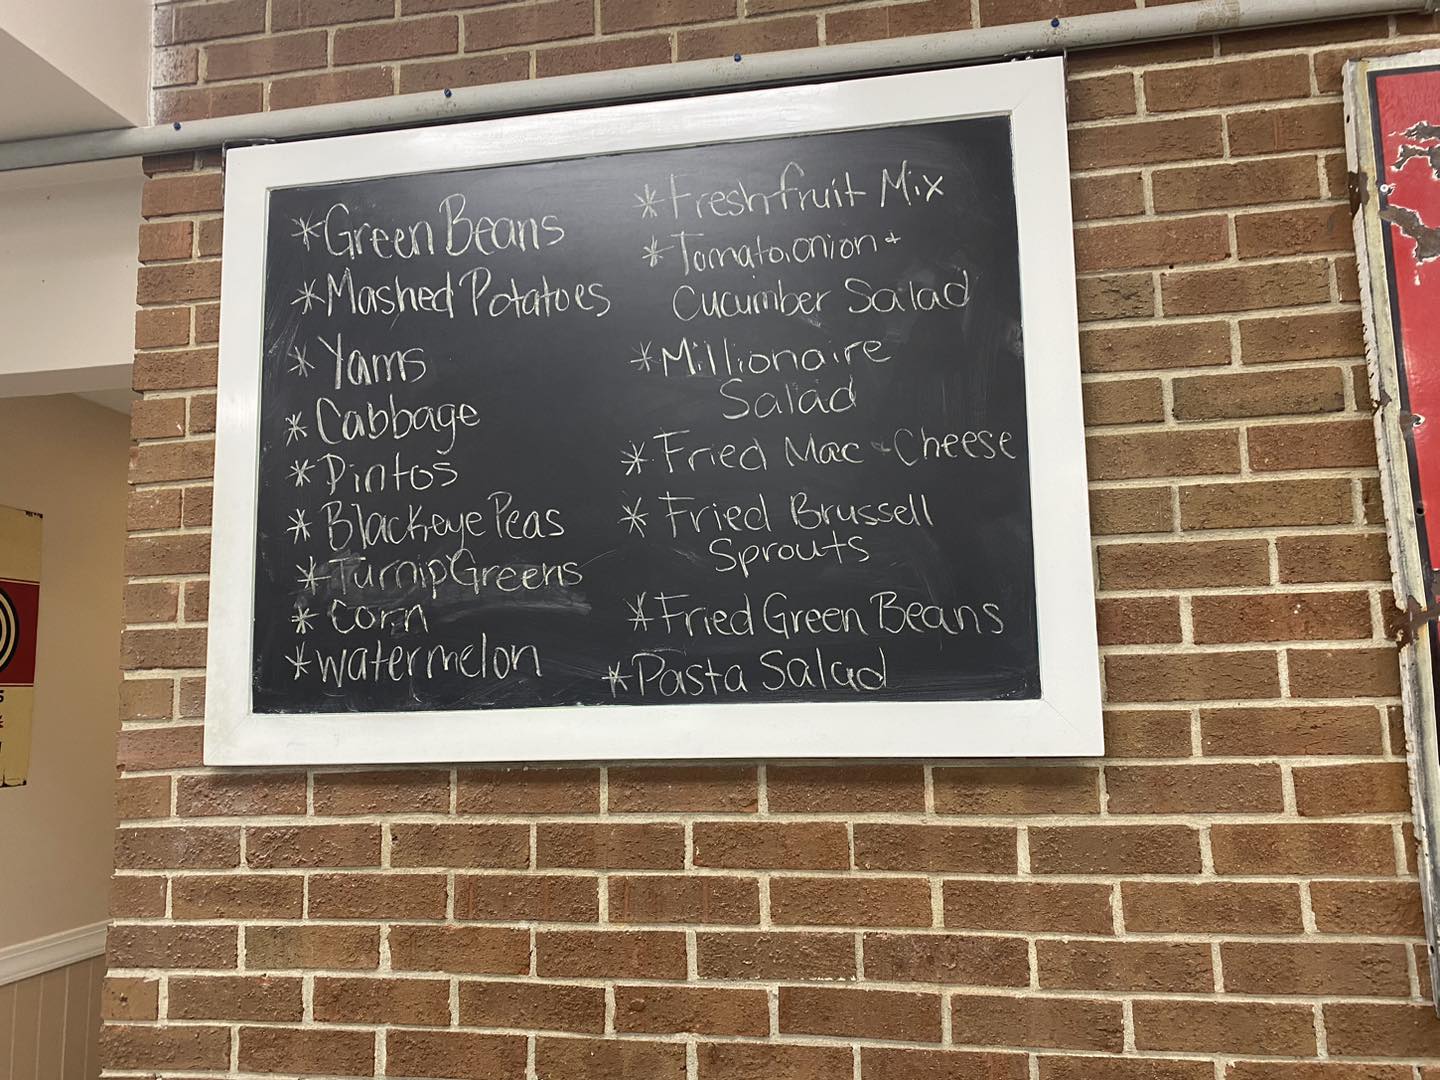 *Green Beans
*Mashed Potatoes
*Yams
*Cabbage
*Pintos
*Blackeye Peas
*Turnip Greens
*Corn
*watermelon
*Fresh fruit Mix
*Tomato, onion +
Cucumber Salad
*Millionaire
Salad
*Fried Mac & Cheese
*Fried Brussell
Sprouts
*Fried Green Beans
*Pasta Salad